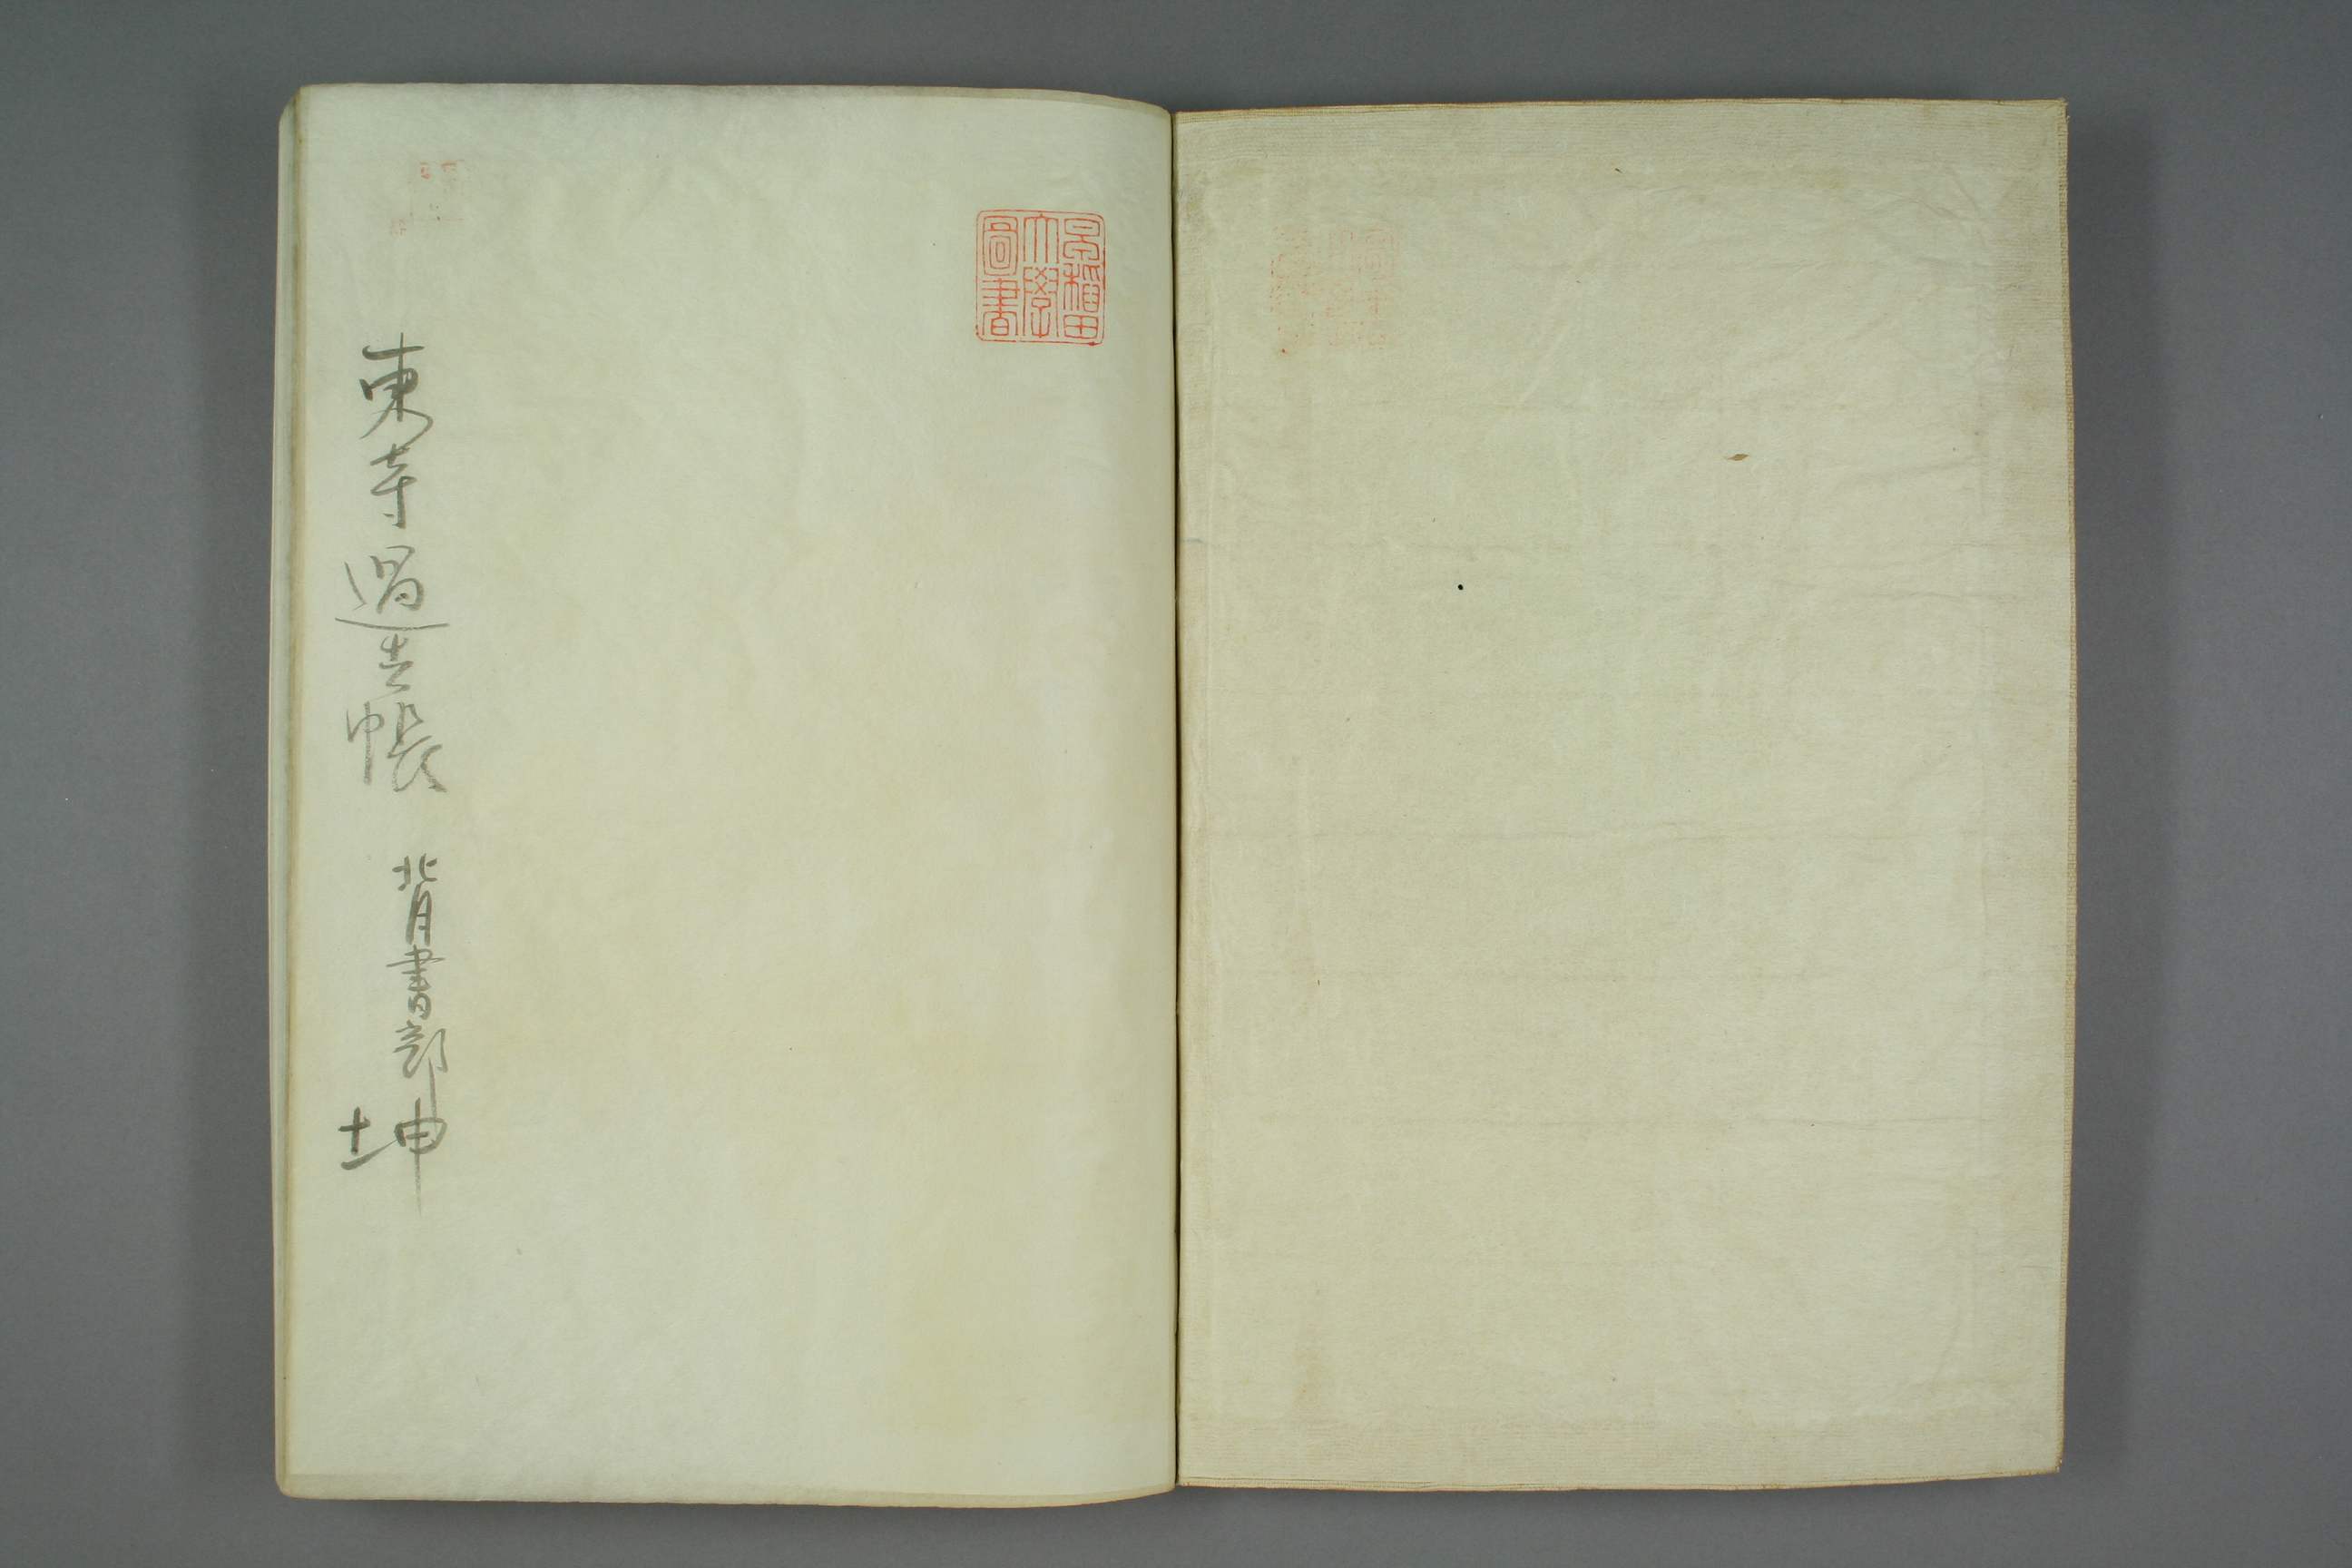 早稲田
大學
圖書
東寺過去帳 背書部 坤